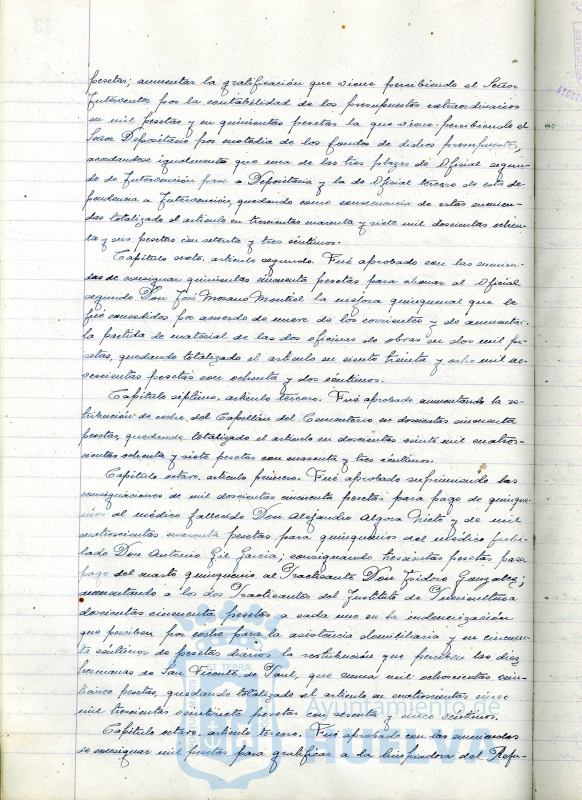 pesetas; aumentar la gratificación que viene percibiendo el Señor
Interventor por la contabilidad de los presupuestos extraordinarios
en mil pesetas y en quinientas pesetas la que viene percibiendo el
Señor Depositario por custodia de los fondos de dichos presupuestos,
acordandose igualmente que una de las tres plazas de Oficial segun-
do de Intervención pase a Depositaria y la de Oficial tercero de esta de-
pendencia a Intervención, quedando como consecuencia de estas enmien-
das totalizado el artículo en trescientas cuarenta y siete mil doscientas ochen-
ta y seis pesetas con setenta y tres céntimos.
Capítulo sexto. artículo segundo. Fué aprobado con las enmien-
das de consignar quinientas cincuenta pesetas para abonar al Oficial
segundo Don José Moreno Montiel la mejora quinquenal que le
fué concedida por acuerdo de nueve de los corrientes y de aumentar
la partida de material de las dos oficinas de obras en dos mil pe-
setas, quedando totalizado el artículo en ciento treinta y ocho mil no-
vescientas pesetas con ochenta y dos céntimos.
Capítulo séptimo, artículo tercero. Fué aprobado aumentando la re-
tribución de coche del Capellán del Cementerio en doscientas cincuenta
pesetas, quedando totalizado el artículo en doscientas veinte mil cuatro-
cientas ochenta y siete pesetas con cuarenta y tres céntimos.
Capítulo octavo, artículo primero. Fué aprobado suprimiendo las
consignaciones de mil doscientas cincuenta pesetas para pago de quinque-
nios al médico fallecido Don Alejandro Algora Nieto y de mil
cuatrocientas cuarenta pesetas para quinquenios del médico jubi-
lado Don Antonio Gil Garcia; consignando trescientas pesetas para
pago del cuarto quinquenio al Practicante Don Isidoro Gonzalez;
aumentando a los dos Practicantes del Instituto de Puericultura
doscientas cincuenta pesetas a cada uno en la indemnización
que perciben por coche para la asistencia domiciliaria y en cincuen-
ta céntimos de pesetas diarios la retribución que perciben las diez
hermanas de San Vicente de Paul, que suma mil ochocientas cin-
cuenta pesetas, quedando totalizado el artículo en cuatrocientas cinco
mil trescientas veintisiete pesetas con sesenta y cinco céntimos.
Capítulo octavo, artículo tercero. Fué aprobado con las enmiendas
de consignar mil pesetas para gratificar a la limpiadora del Refu-
Ayuntamiento de